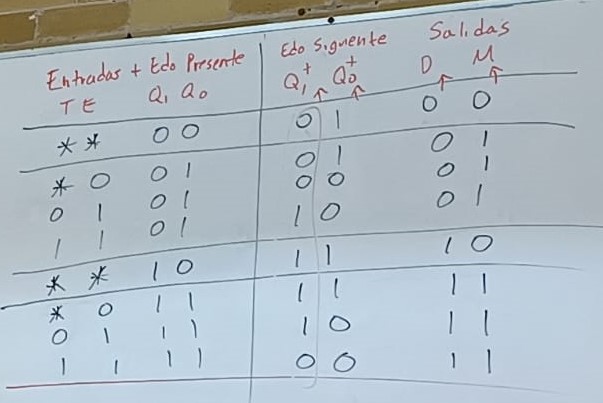 Entradas + Edo Presente Edo Siguente Salidas
T E Q₁ Q₀ Q₁⁺ ↑ Q₀⁺ ↑ D ↑ M ↑
* * 0 0 0 1 0 0
* 0 0 1 0 1 0 1
0 1 0 1 0 0 0 1
1 1 0 1 1 0 0 1
* * 1 0 1 1 1 0
* 0 1 1 1 1 1 1
0 1 1 1 1 0 1 1
1 1 1 1 0 0 1 1